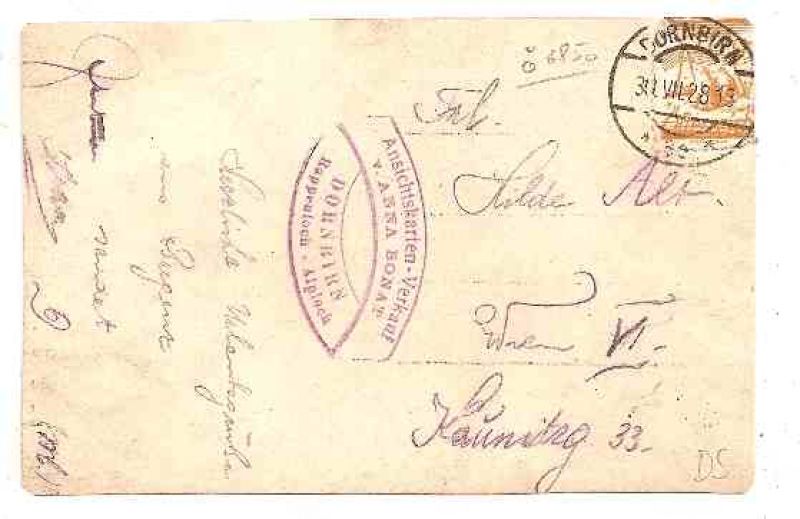 ö 6850
DORNBIRN
31.VII.28 13
Frl.
Hilde Alt
Wien VI.
Kaunitzg 33.
DS
Ansichtskarten-Verkauf
v. ANNA BONAT
DORNBIRN
Rappenloch - Alploch
Herzliche Urlaubsgrüße
aus Bregenz
sendet